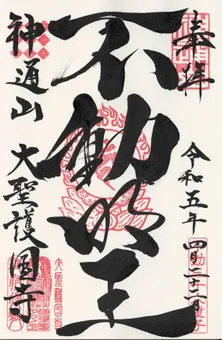 奉拝
令和五年四月二十二日
不動明王
神通山
大聖護國寺